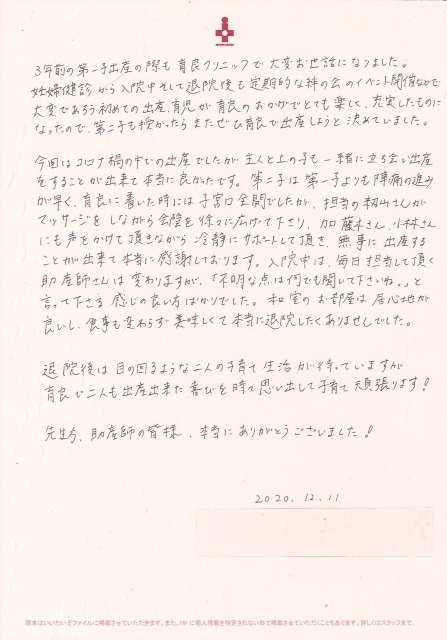 3年前の第一子出産の際も育良クリニックで大変お世話になりました。
妊婦健診から入院中そして退院後も定期的な絆の会のイベント開催などで
大変であろう初めての出産、育児が育良のおかげでとても楽しく、充実したものに
なったので、第二子も授かったらまたぜひ育良で出産しようと決めていました。
今回はコロナ禍の中での出産でしたが主人と上の子も一緒に立ち会い出産
をすることが出来て本当に良かったです。第二子は第一子よりも陣痛の進み
が早く、育良に着いた時には子宮口全開でしたが、担当の籾山さんが
マッサージをしながら会陰を徐々に広げて下さり、加藤木さん、小林さん
にも声をかけて頂きながら冷静にサポートして頂き、無事に出産する
ことが出来て本当に感謝しております。入院中は、毎日担当して頂く
助産師さんは変わりますが、「不明な点は何でも聞いて下さいね。」と
言って下さる感じの良い方ばかりでした。和室のお部屋は居心地が
良いし、食事も変わらず美味しくて本当に退院したくありませんでした。
退院後は目の回るような二人の子育て生活が待っていますが
育良で二人も出産出来た喜びを時々思い出して子育て頑張ります!
先生方、助産師の皆様、本当にありがとうございました!
2020.12.11
原本はいいたいぞファイルに掲載させていただきます。また、HPに個人情報を特定されない形で掲載させていただくこともあります。詳しくはスタッフまで。